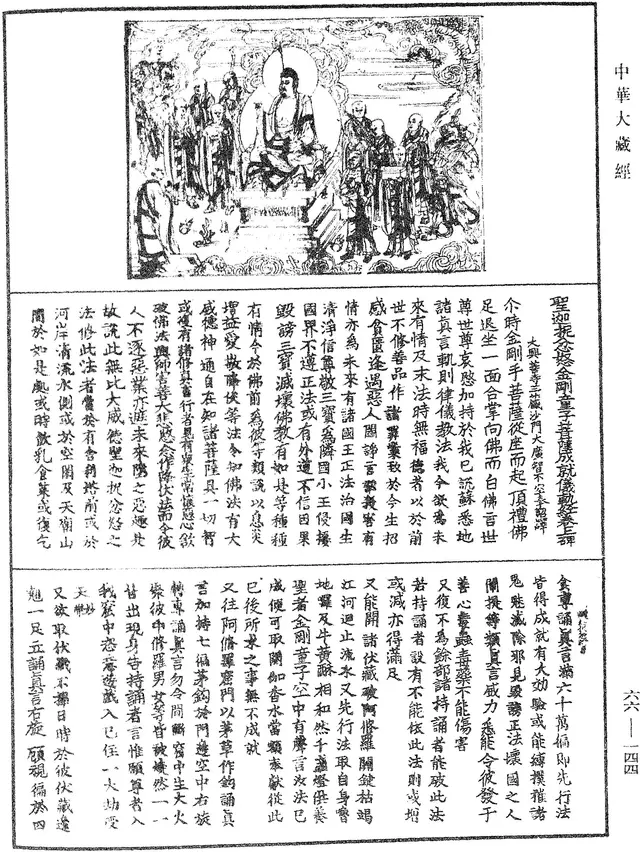 中華大藏經
聖迦抳忿怒金剛童子菩薩成就儀軌經卷上
大興善寺三藏沙門大廣智不空奉 詔譯
尒時金剛手菩薩從座而起頂禮佛
足退坐一面合掌向佛而白佛言世
尊世尊哀愍加持於我已說蘇悉地
諸真言軌則律儀教法我今欲為未
來有情及末法時無福德者以於前
世不修善品作諸罪業致於今生招
感貧匱逢遇惡人鬭諍言訟損害有
情亦為未來有諸國王正法治國生
清淨信尊敬三寶為隣國小王侵擾
國界不遵正法或有外道不信因果
毀謗三寶滅壞佛教有如是等種種
有情今於佛前為彼等類說以息災
增益愛敬降伏等法令知佛法有大
威德神通自在知諸菩薩具一切智
或復有諸修真言行者見有情生常懷惡心欲
破佛法興師害善大悲愍念作降伏法而令彼
人不逐惡業亦避未來墮之惡趣是
故說此無比大威德聖迦抳忿怒之
法修此法者當於有舍利塔前或於
河岸清流水側或於空閑及天廟山
閒於如是處或時飲乳食菜或復乞
食專誦真言滿六十萬徧即先行法
皆得成就有大効驗或能縛撲摧諸
鬼魅滅除邪見毀謗正法壞國之人
闡提等類真言威力悉能令彼發于
善心蠱毒毒藥不能傷害
又復不為餘部諸持誦者能破此法
若持誦者設有不能依此法則或增
或減亦得滿足
又能開諸伏藏破阿修羅關鍵枯竭
江河迴止流水又先行法取自身

聖者金剛童子空中有聲言汝法已
成便可取閼伽香水當頻奉獻從此
已後所求之事無不成就
又往阿修羅窟門以茅草作鉤誦真
言加持七徧茅鉤於門邊空中右旋
轉專誦真言勿令間斷窟中生大火
樂彼中修羅男女等皆被燒然一一
皆出現身告持誦者言惟願尊者入
我窟中恣意遊戲入已住一大劫受
天妙
又欲取伏藏不擇日時於彼伏藏邊
翹一足立誦真言右旋顧視徧於四
六六—一四四